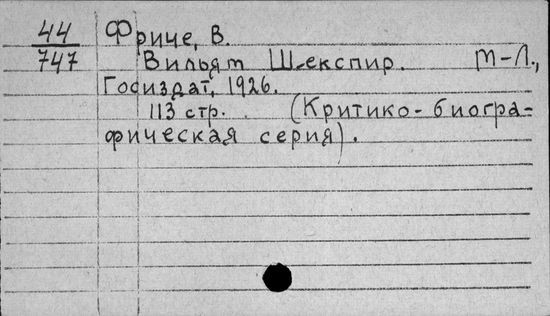 44 Фриче, В.
747 Вильям Шекспир. М-Л.,
Госиздат, 1926.
113 стр. (Критико-биогра-
фическая серия).